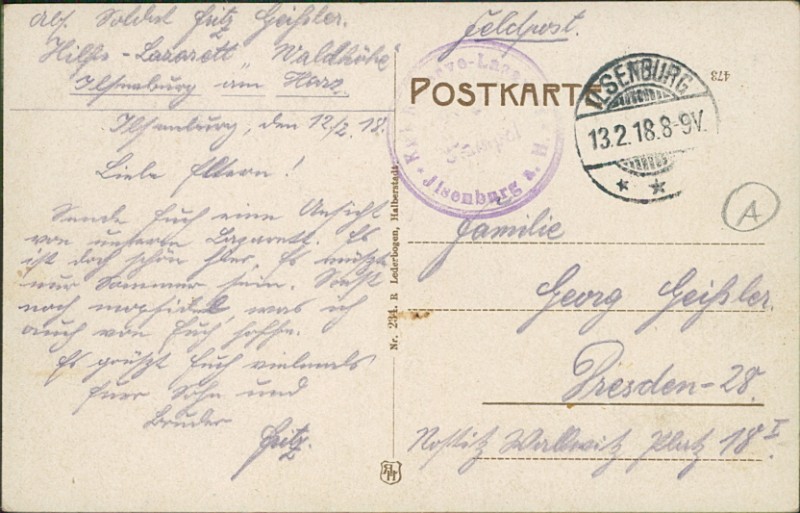 Abs. Soldat Fritz Geißler.
Hilfs-Lazarett "Waldhöhe"
Ilsenburg am Harz
Ilsenburg, den 12/2. 18.
Liebe Eltern!
Sende Euch eine Ansicht
von unseren Lazarett. Es
ist doch schön hier. Es müßte
nur Sommer sein. Sonst
noch mopsfidel, was ich
auch von Euch hoffe.
Es grüßt Euch vielmals
Euer Sohn und
Bruder
Fritz.
Nr. 234. R Lederbogen, Halberstadt
Feldpost.
POSTKARTE
Reserve-Laza
Ilsenburg a. H.
ILSENBURG
13.2.18.8-9V.
473
A
Familie
Georg Geißler.
Dresden-28.
Nostitz Wallwitz Platz 18 I